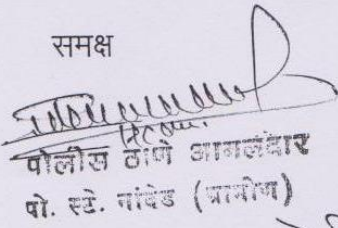 समक्ष
पोलीस ठाणे आमलदार
पो. स्टे. नांदेड (ग्रामीण)